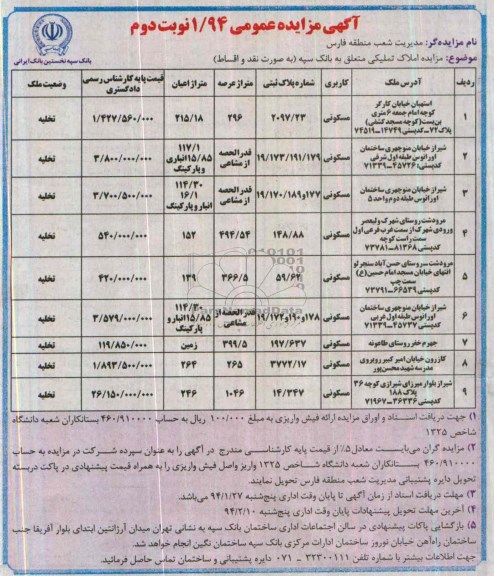 آگهی مزایده عمومی ۱/۹۴ نوبت دوم
نام مزایده‌گر: مدیریت شعب منطقه فارس
موضوع: مزایده املاک تملیکی متعلق به بانک سپه (به صورت نقد و اقساط)
بانک سپه نخستین بانک ایرانی
ردیف آدرس ملک کاربری شماره پلاک ثبتی متراژ عرصه متراژ اعیان قیمت پایه کارشناس رسمی دادگستری وضعیت ملک
۱ استهبان خیابان کارگر کوچه امام جمعه ۶ متری بن‌بست (کوچه مسجد کشفی) پلاک ۷۲-کدپستی ۱۴۷۴۹-۷۴۵۱۹ مسکونی ۲۰۹۷/۲۳ ۲۹۶ ۲۱۵/۱۸ ۱/۴۲۷/۵۶۰/۰۰۰ تخلیه
۲ شیراز خیابان منوچهری ساختمان اورانوس طبقه اول شرقی کدپستی: ۴۵۷۲۶-۷۱۳۳۹ مسکونی ۱۹/۱۷۳/۱۹۱/۱۷۹ قدرالحصه از مشاعی ۱۱۷/۱ ۱۵/۸۵ انباری و پارکینگ ۳/۸۰۰/۰۰۰/۰۰۰ تخلیه
۳ شیراز خیابان منوچهری ساختمان اورانوس طبقه دوم واحد ۵ مسکونی ۱۷۷و۱۹/۱۷۰/۱۸۹ قدرالحصه از مشاعی ۱۱۴/۳۰ ۱۶/۱ انبار و پارکینگ ۳/۷۰۰/۵۰۰/۰۰۰ تخلیه
۴ مرودشت روستای شهرک ولیعصر ورودی شهرک از سمت غرب فرعی اول سمت راست کوچه کدپستی ۸۱۳۶۸-۷۳۷۸۱ مسکونی ۱۴۸/۸۸ ۴۹۴/۵۴ ۱۵۲ ۵۴۰/۰۰۰/۰۰۰ تخلیه
۵ مرودشت-روستای حسن آباد سنجرلو انتهای خیابان مسجد امام حسین(ع) سمت چپ کدپستی ۶۶۵۳۹-۷۳۷۹۱ مسکونی ۵۹/۶۲ ۳۶۶/۵ ۱۳۹ ۴۲۰/۰۰۰/۰۰۰ تخلیه
۶ شیراز خیابان منوچهری ساختمان اورانوس طبقه اول غربی کدپستی ۴۵۷۳۷-۷۱۳۳۹ مسکونی ۱۷۸و۱۹۰و۱۹/۱۷۲ قدرالحصه از مشاعی ۱۱۴/۳۰ ۱۵/۸۵ انبار و پارکینگ ۳/۵۷۹/۰۰۰/۰۰۰ تخلیه
۷ جهرم خفر روستای طاعونه مسکونی ۱۹۷/۶۳۷ ۳۹۹/۵ زمین ۱۱۹/۸۵۰/۰۰۰ تخلیه
۸ کازرون خیابان امیر کبیر روبروی مدرسه شهید محسن‌پور مسکونی ۳۷۷۲/۱۷ ۲۶۵ ۲۶۴ ۱/۸۹۳/۵۰۰/۰۰۰ تخلیه
۹ شیراز بلوار میرزای شیرازی کوچه ۳۶ پلاک ۱۸۸ کدپستی ۳۶۳۳۶-۷۱۹۶۷ مسکونی ۱۴/۳۴۷ ۱۰۴۶ ۲۴۶ ۲۶/۱۵۰/۰۰۰/۰۰۰ تخلیه
۱) جهت دریافت اسناد و اوراق مزایده ارائه فیش واریزی به مبلغ ۱۰۰/۰۰۰ ریال به حساب ۴۶۰/۹۱۰۰۰۰ بستانکاران شعبه دانشگاه
شاخص ۱۳۲۵
۲) مزایده گران می‌بایست معادل ۵٪ از قیمت پایه کارشناسی مندرج در آگهی را به عنوان سپرده شرکت در مزایده به حساب
۴۶۰/۹۱۰۰۰۰ بستانکاران شعبه دانشگاه شاخص ۱۳۲۵ واریز واصل فیش واریزی را به همراه قیمت پیشنهادی در پاکت دربسته
تحویل دایره پشتیبانی مدیریت شعب منطقه فارس تحویل نمایند.
۳) مهلت دریافت اسناد از زمان آگهی تا پایان وقت اداری پنج‌شنبه ۹۴/۱/۲۷ می‌باشد.
۴) آخرین مهلت تحویل پیشنهادات پایان وقت اداری پنج‌شنبه ۹۴/۲/۱۰
۵) بازگشایی پاکات پیشنهادی در سالن اجتماعات اداری ساختمان بانک سپه به نشانی تهران میدان آرژانتین ابتدای بلوار آفریقا جنب
ساختمان راه‌آهن خیابان نوروز ساختمان ادارات مرکزی بانک سپه ساختمان نگین انجام خواهد شد.
جهت اطلاعات بیشتر با شماره تلفن ۳۲۳۰۰۱۱۱ - ۰۷۱ دایره پشتیبانی و ساختمان تماس حاصل فرمائید.